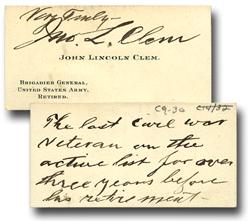 Very Truly-
Jno. L. Clem
JOHN LINCOLN CLEM.
BRIGADIER GENERAL,
UNITED STATES ARMY,
RETIRED.
The last civil war
veteran on the
active list for over
three years before
his retirement-